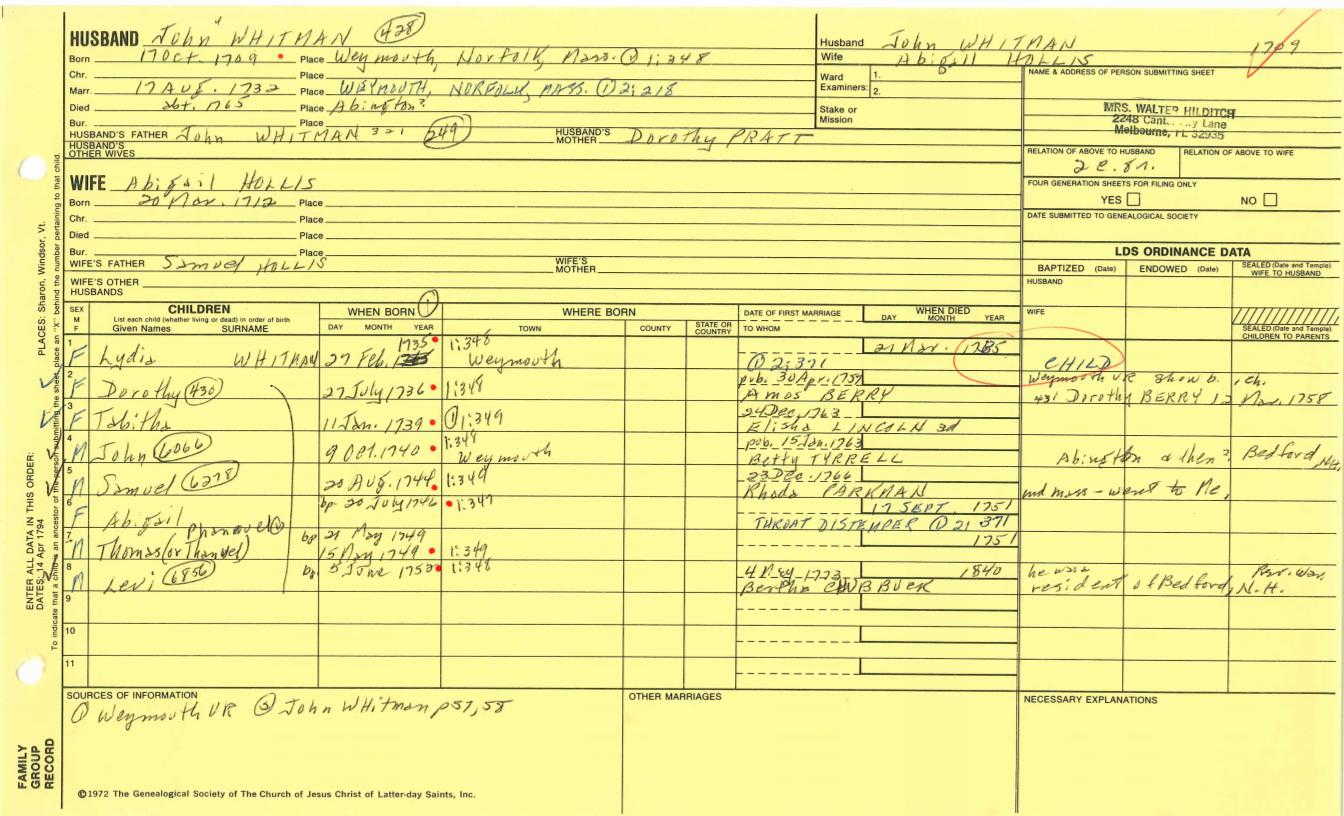 HUSBAND John⁴ WHITMAN 428
Born 17 Oct. 1709 Place Weymouth, Norfolk, Mass. ① 1:348
Chr. Place
Marr 17 Aug. 1732 Place WEYMOUTH, NORFOLK, MASS. ① 2:218
Died abt. 1765 Place Abington?
Bur. Place
HUSBAND'S FATHER John WHITMAN 3 2 1 249 HUSBAND'S MOTHER Dorothy PRATT
HUSBAND'S OTHER WIVES
Husband John WHITMAN 1709
Wife Abigail HOLLIS
Ward Examiners: 1.
2.
Stake or Mission
NAME & ADDRESS OF PERSON SUBMITTING SHEET
MRS. WALTER HILDITCH
2248 Lane
Melbourne, FL 32935
RELATION OF ABOVE TO HUSBAND RELATION OF ABOVE TO WIFE
FOUR GENERATION SHEETS FOR FILING ONLY
YES NO
DATE SUBMITTED TO GENEALOGICAL SOCIETY
WIFE Abigail HOLLIS
Born 20 Mar. 1712 Place
Chr. Place
Died Place
Bur. Place
WIFE'S FATHER Samuel HOLLIS WIFE'S MOTHER
WIFE'S OTHER HUSBANDS
LDS ORDINANCE DATA
BAPTIZED (Date) ENDOWED (Date) SEALED (Date and Temple) WIFE TO HUSBAND
HUSBAND
WIFE
SEALED (Date and Temple) CHILDREN TO PARENTS
SEX M F CHILDREN WHEN BORN ① WHERE BORN DATE OF FIRST MARRIAGE WHEN DIED
List each child (whether living or dead) in order of birth
Given Names SURNAME DAY MONTH YEAR TOWN COUNTY STATE OR COUNTRY TO WHOM DAY MONTH YEAR
1 F Lydia WHITMAN 27 Feb. 1735 1:348 Weymouth 21 Mar. 1735 CHILD
① 2:371
2 F Dorothy 430 27 July 1736 1:348 pub. 30 Apr. 1757 Weymouth VR show b. , ch.
Amos BERRY 431 Dorothy BERRY 12 Mar. 1758
3 F Tabitha 11 Jan. 1739 ① 1:349 24 Dec. 1763
Elisha LINCOLN 3d
4 M John 6066 9 Oct. 1740 1:348 Weymouth pub. 15 Jan. 1763
Betty TYRRELL Abington & then? Bedford, NH
5 M Samuel 6278 20 Aug. 1744 1:348 23 Dec. 1766
Rhoda PARKMAN md mass - went to Me.
6 F Abigail bp. 20 July 1746 1:347 17 SEPT. 1751
THROAT DISTEMPER ① 2: 371
7 M Thomas (or Thanuel) Phanuel bp 21 May 1749
15 May 1749 1:349 1751
8 M Levi 6856 bp. 5 June 1752 1:348 4 May 1773 1840 he was Rev. War.
Bertha CHUBBUCK resident of Bedford, N.H.
9
10
11
SOURCES OF INFORMATION
① Weymouth VR ② John WHitman p57,58
OTHER MARRIAGES
NECESSARY EXPLANATIONS
©1972 The Genealogical Society of The Church of Jesus Christ of Latter-day Saints, Inc.
FAMILY GROUP RECORD
ENTER ALL DATA IN THIS ORDER:
DATES: 14 Apr 1794 PLACES: Sharon, Windsor, Vt.
To indicate that a child is an ancestor of the person submitting the sheet, place an "X" behind the number pertaining to that child.